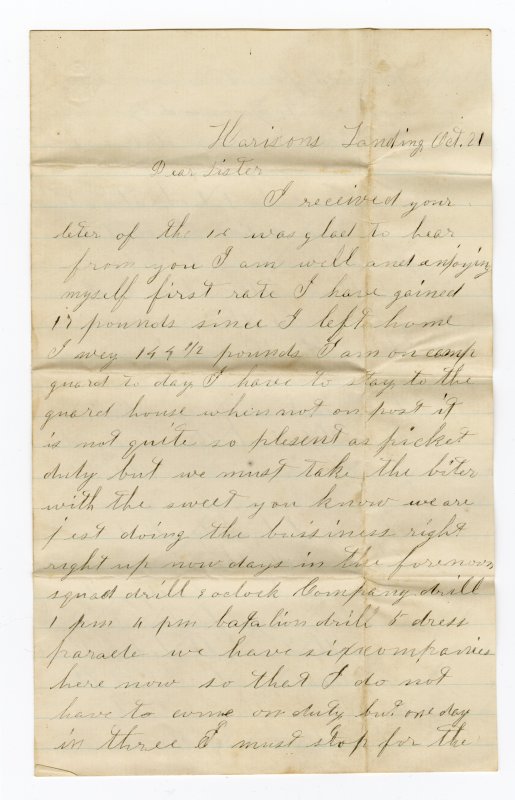 Harisons Landing Oct. 21
Dear Sister
I received your
leter of the 12 was glad to hear
from you I am well and enjoying
myself first rate I have gained
17 pounds since I left home
I wey 144 1/2 pounds I am on camp
guard to day I have to stay to the
guard house when not on post it
is not quite so plesent as picket
duty but we must take the biter
with the sweet you know we are
jest doing the bussiness right
right up now days in the forenoon
squad drill oclock Company drill
1 pm 4 pm batalion drill & dress
parade we have six companies
here now so that I do not
have to come on duty but one day
in three I must stop for the